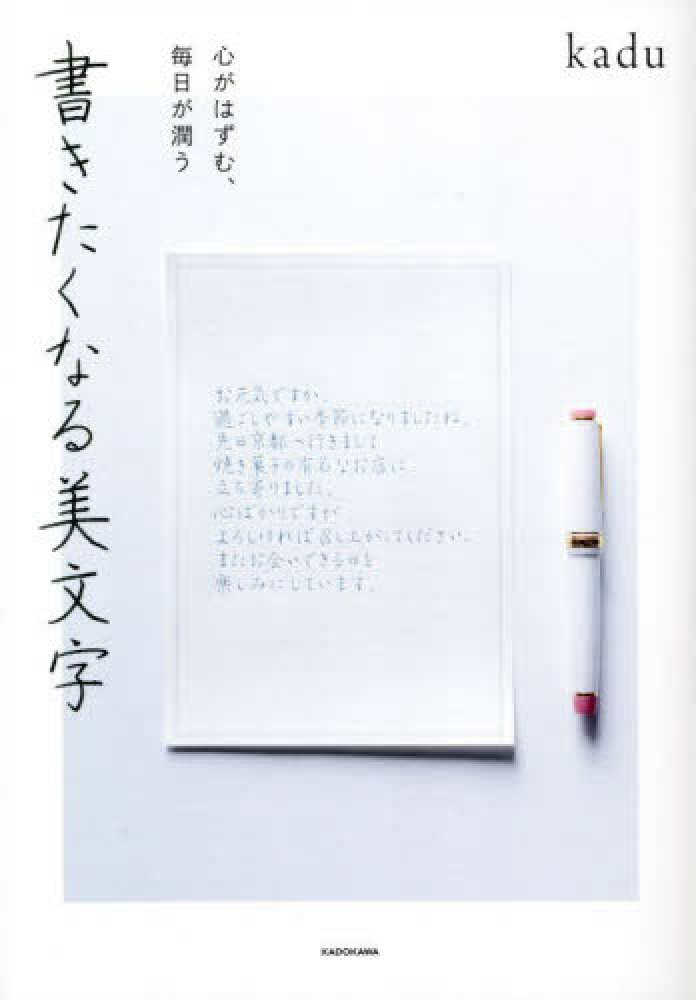 kadu
心がはずむ、
毎日が潤う
書きたくなる美文字
お元気ですか。
過ごしやすい季節になりましたね。
先日京都へ行きまして
焼き菓子の有名なお店に
立ち寄りました。
心ばかりですが
よろしければ召し上がってください。
またお会いできる日を
楽しみにしています。
KADOKAWA